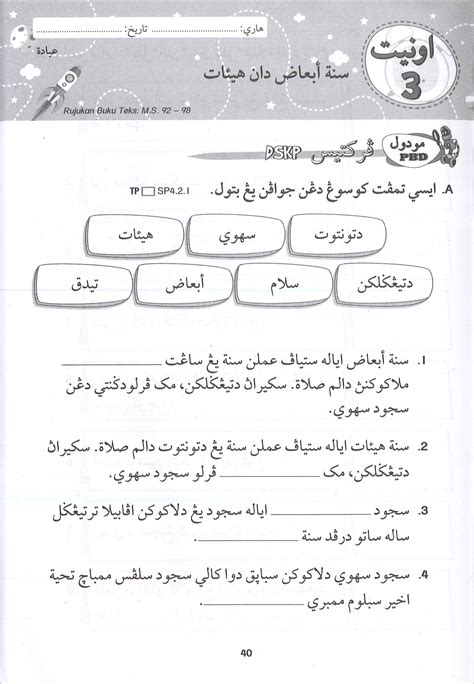 هاري: تاريخ:
عبادة
اونيت 3
سنة أبعاض دان هيئات
Rujukan Buku Teks: M.S. 92 – 98
مودول PBD
ڤرکتيس DSKP
A. ايسي تمڤت کوسوڠ دڠن جواڤن يڠ بتول. TP SP4.2.1
دتونتوت سهوي هيئات
دتيڠݢلکن سلام أبعاض تيدق
1. سنة أبعاض اياله ستياڤ عملن سنة يڠ ساڠت
ملاکوکنڽ دالم صلاة. سکيراڽ دتيڠݢلکن، مک ڤرلو دݢنتي دڠن
سجود سهوي.
2. سنة هيئات اياله ستياڤ عملن سنة يڠ دتونتوت دالم صلاة. سکيراڽ
دتيڠݢلکن، مک ڤرلو سجود سهوي.
3. سجود اياله سجود يڠ دلاکوکن اڤابيلا ترتيڠݢل
ساله ساتو درڤد سنة .
4. سجود سهوي دلاکوکن سباڽق دوا کالي سجود سلڤس ممباچ تحية
اخير سبلوم ممبري .
40